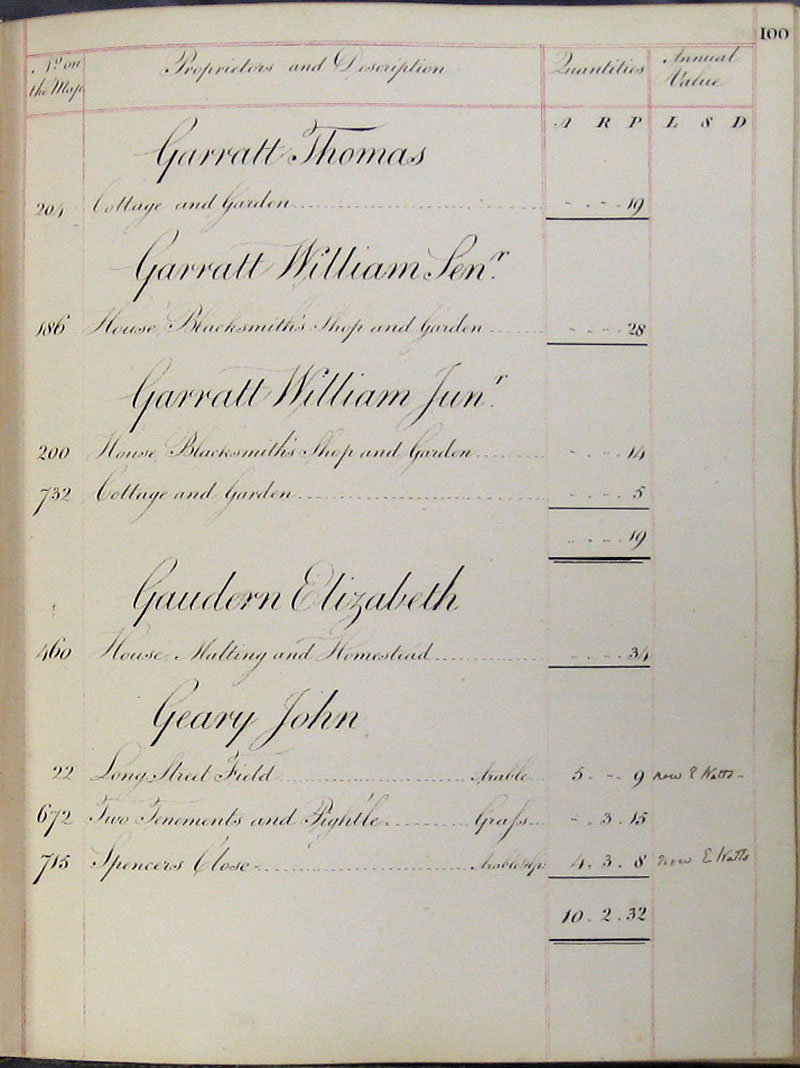 100
No. on the Map Proprietors and Description Quantities Annual Value
A R P L S D
Garratt Thomas
204 Cottage and Garden 19
Garratt William Senr.
186 House, Blacksmith's Shop and Garden 28
Garratt William Junr.
200 House, Blacksmith's Shop and Garden 14
732 Cottage and Garden 5
19
Gaudern Elizabeth
460 House, Malting and Homestead 34
Geary John
22 Long Street Field Arable 5 . - 9 now E Watts -
672 Two Tenements and Pightle Grass - . 3 . 15
715 Spencers Close Arable 4 . 3 . 8 now E Watts
10 . 2 . 32